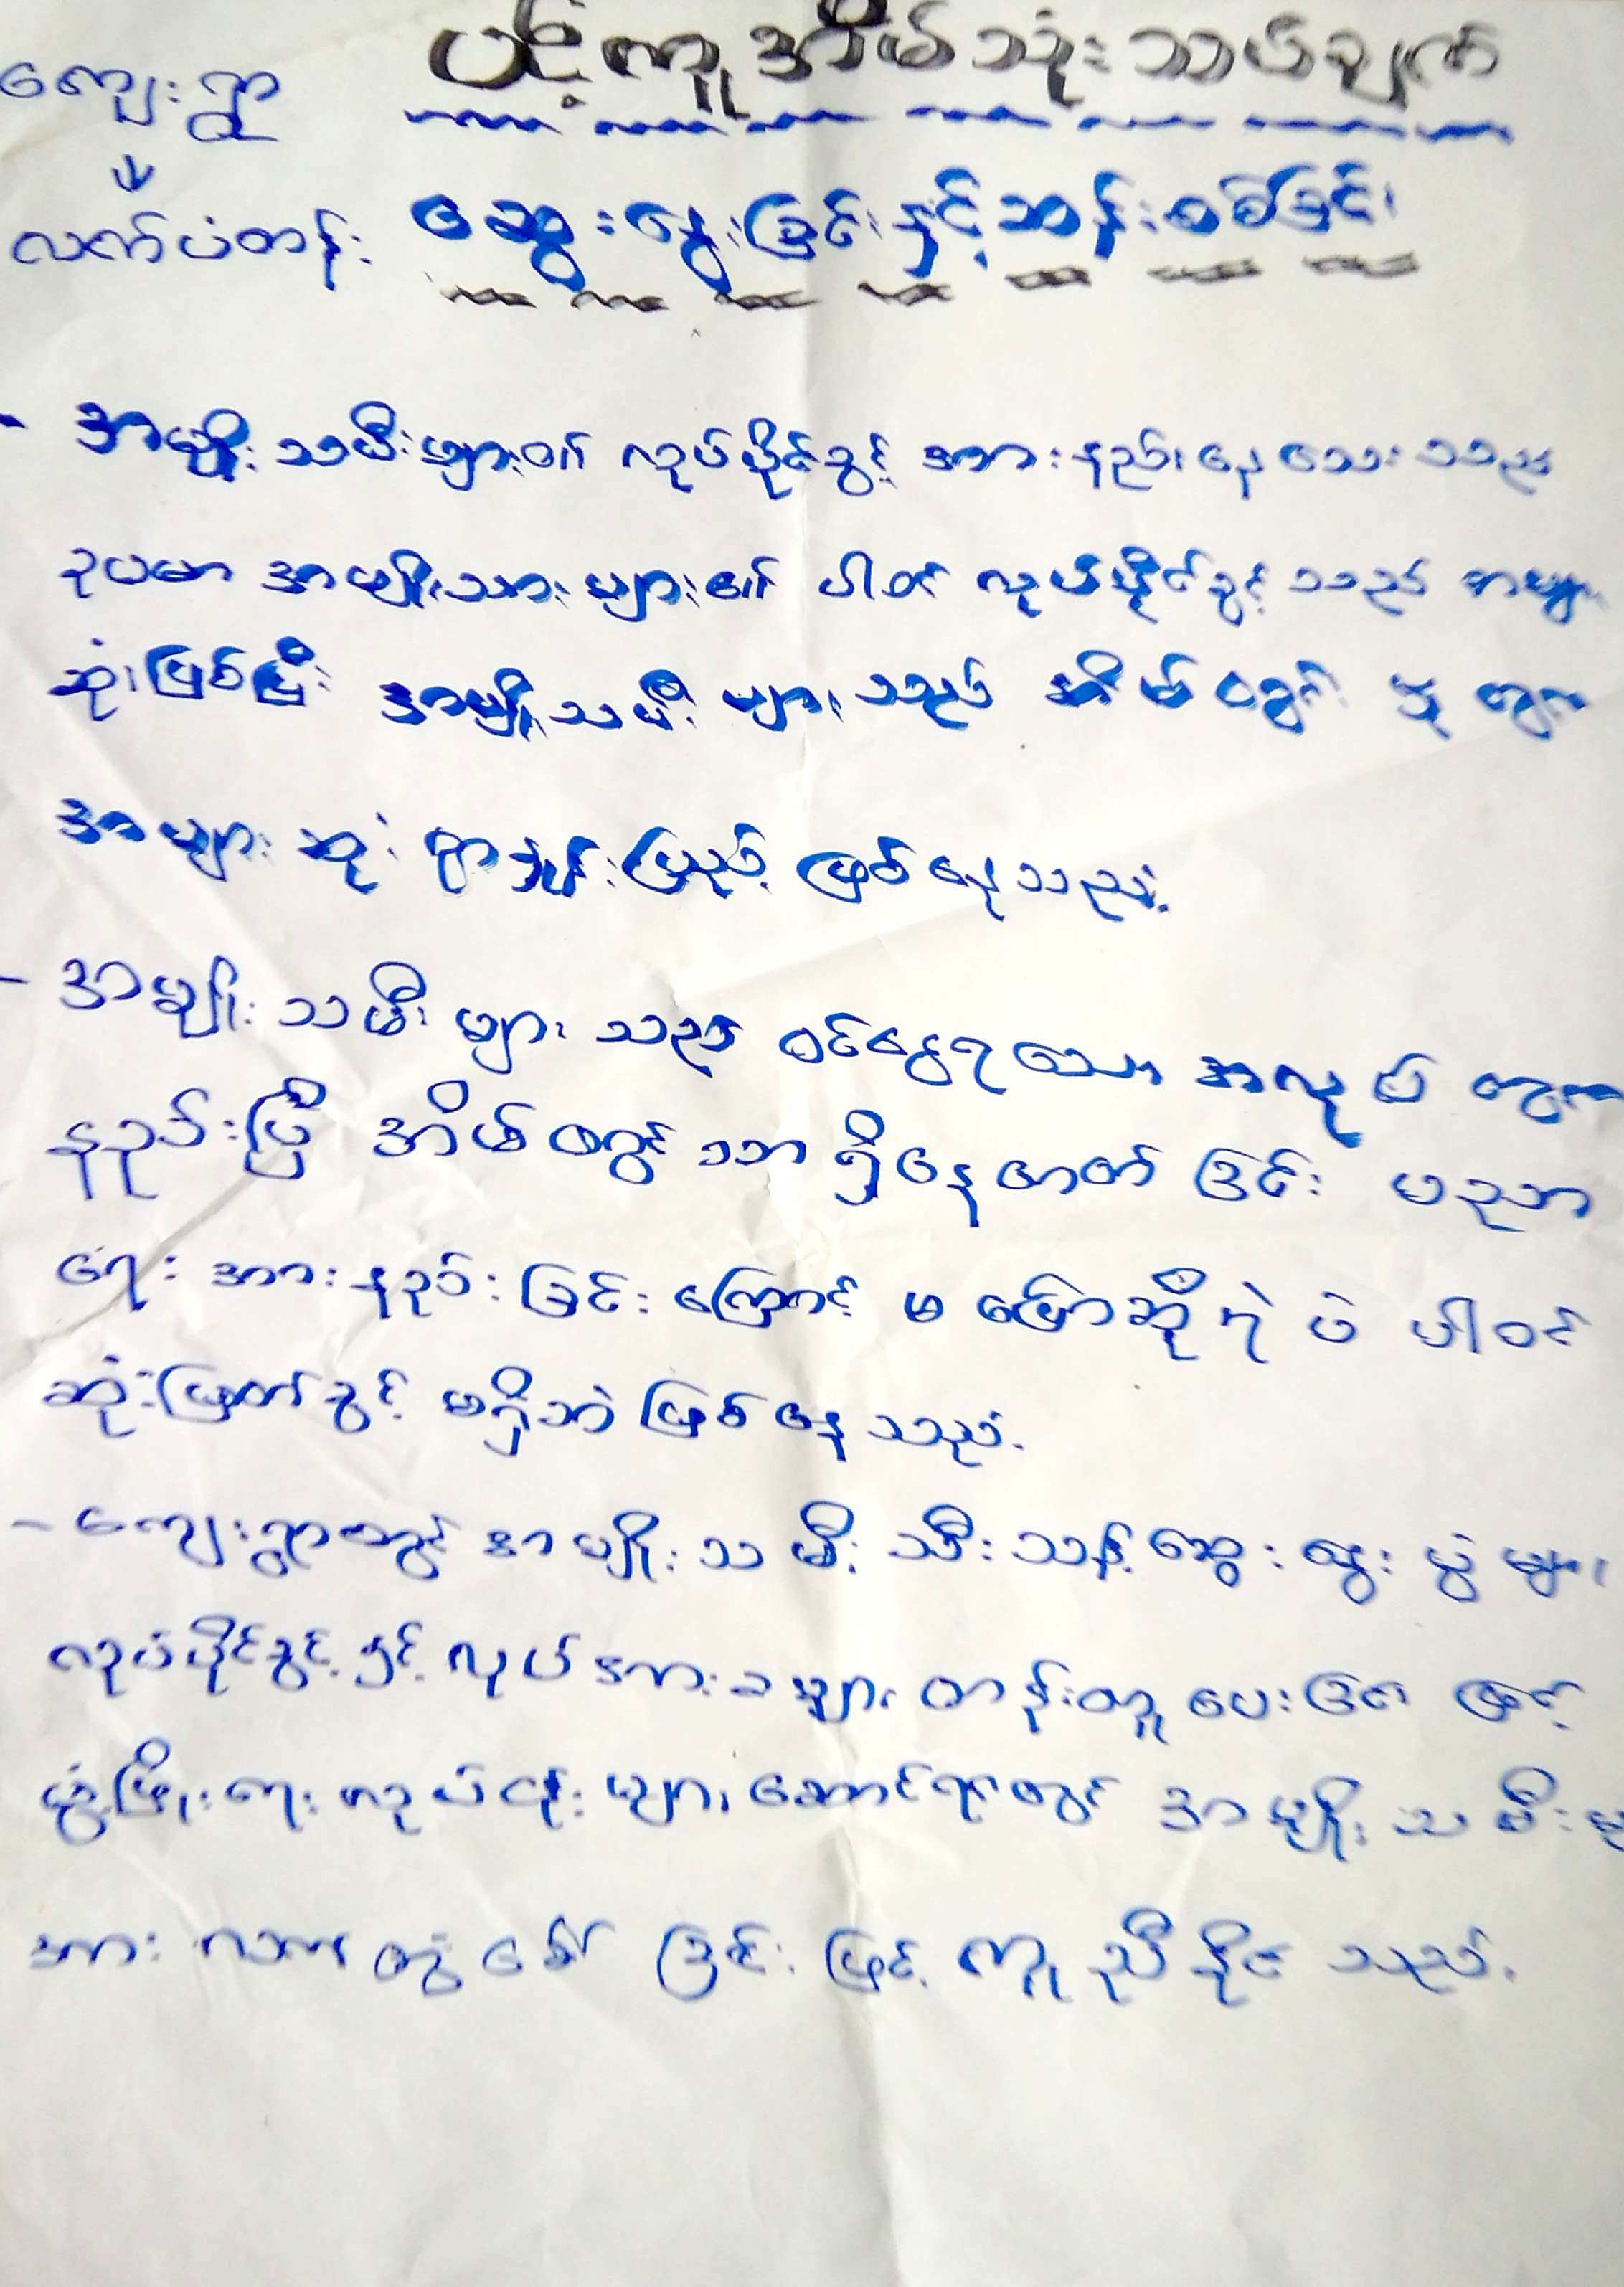 ပင့်ကူအိမ်သုံးသပ်ချက်
ကျေးရွာ
↓
လက်ပံတန်း
ဆွေးနွေးခြင်းနှင့်ဆန်းစစ်ခြင်း
- အမျိုးသမီးများ၏ လုပ်ပိုင်ခွင့် အားနည်းနေသေးသည်
ဥပမာ အမျိုးသားများ၏ ပါဝင် လုပ်ပိုင်ခွင့်သည် အများ
ဆုံးဖြစ်ပြီး အမျိုးသမီးများသည် အိမ်တွင်းမှု တွေက
အများဆုံး ဖြစ်နေသည်။
- အမျိုးသမီးများသည် ဝင်ငွေရသော အလုပ် တွေက
နည်းပြီး အိမ်တွင်သာ ရှိနေတတ်ခြင်း ပညာ
ရေး အားနည်းခြင်းကြောင့် မပြောဆိုရဲပဲ ပါဝင်
ဆုံးဖြတ်ခွင့် မရှိဘဲ ဖြစ်နေသည်။
- ကျေးရွာတွင် အမျိုးသမီး သီးသန့်ဆွေးနွေးပွဲများ
လုပ်ပိုင်ခွင့်နှင့် လုပ်အားခများ တန်းတူပေးခြင်းဖြင့်
ဖွံ့ဖြိုးရေးလုပ်ငန်းများဆောင်ရွက်တွင် အမျိုးသမီးမျ
အား ဖိတ်ခေါ်ခြင်းဖြင့် ကူညီနိုင်သည်။